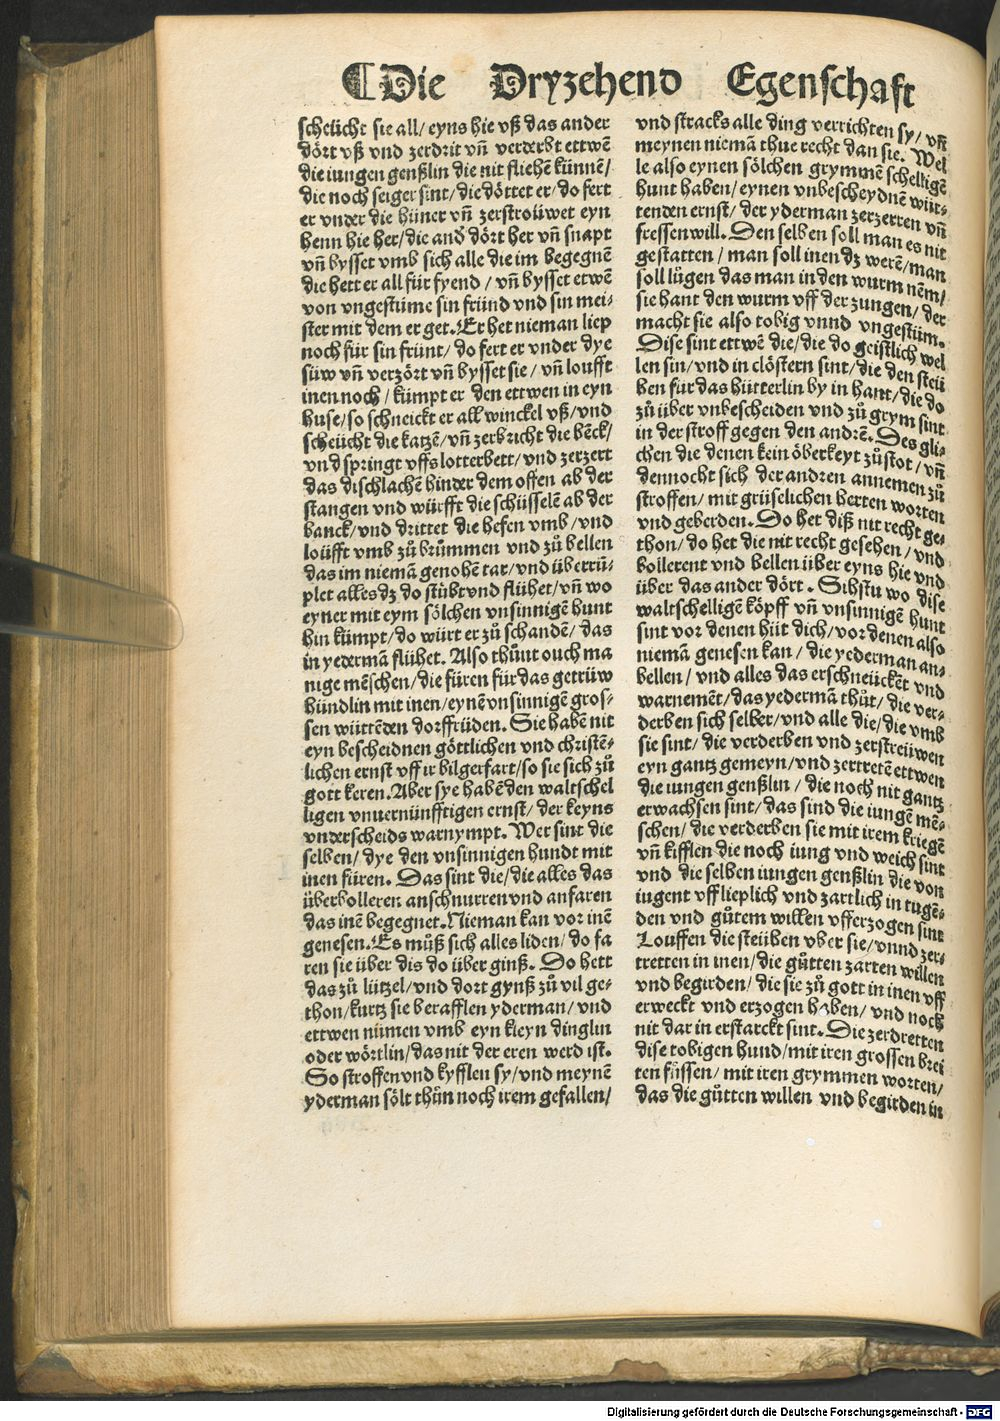 ¶Die Dryzehend Egenschaft
scheücht sie all/ eyns hie vß das ander
dört vß vnd zerdrit vñ verderbt ettwẽ
die iungen genßlin die nit fliehẽ künnẽ/
die noch seiger sint/ die döttet er/ do fert
er vnder die hüner vñ zerströüwet eyn
henn hie her/ die and dört her vñ snapt
vñ bysset vmb sich alle die im begegnẽ
die hett er all für fyend / vñ bysset etwẽ
von vngestüme sin fründ vnd sin mei⸗
ster mit dem er get. Er het nieman liep
noch für sin frünt/ do fert er vnder dye
süw vñ verzört vñ bysset sie / vñ loufft
inen noch / kümpt er den ettwen in eyn
huse/ so schneickt er all winckel vß/ vnd
scheücht die katzẽ/ vñ zerbricht die bẽck/
vnd springt vffs lotterbett/ vnd zerzert
das dischlachẽ hinder dem offen ab der
stangen vnd würfft die schüsselẽ ab der
banck/ vnd drittet die hefen vmb/ vnd
loüfft vmb zů brům̃en vnd zů bellen
das im niemã genohẽ tar/ vnd überrü⸗
plet alles dz do stübt vnd flühet/ vñ wo
eyner mit eym sölchen vnsinnigẽ hunt
hin kümpt/ do würt er zů schandẽ/ das
in yedermã flühet. Also thůnt ouch ma
nige mẽschen/ die füren für das getrüw
hündlin mit inen/ eynẽ vnsinnigẽ gros⸗
sen wüttẽden dorffrüden. Sie habẽ nit
eyn bescheidnen göttlichen vnd christẽ⸗
lichen ernst vff ir bilgerfart/ so sie sich zů
gott keren. Aber sye habẽ den waltschel
ligen vnuernünfftigen ernst/ der keyns
vnderscheids warnympt. Wer sint die
selben/ dye den vnsinnigen hundt mit
inen füren. Das sint die/ die alles das
überbolleren anschnurren vnd anfaren
das inẽ begegnet. Nieman kan vor inẽ
genesen. Es můß sich alles liden/ do fa
ren sie über dis do über ginß. Do hett
das zů lützel/ vnd dort gynß zů vil ge⸗
thon/ kurtz sie berafflen yderman/ vnd
ettwen nümen vmb eyn kleyn dinglin
oder wörtlin/ das nit der eren werd ist.
So stroffen vnd kyfflen sy/ vnd meynẽ
yderman sölt thůn noch irem gefallen/
vnd stracks alle ding verrichten sy/ vñ
meynen niemã thue recht dan sie. Wel
le also eynen sölchen grymmẽ schelligẽ
hunt haben/ eynen vnbescheydnẽ wüt⸗
tenden ernst/ der yderman zerzerren vñ
fressen will. Den selben soll man es nit
gestatten / man soll inen dz werẽ/ man
soll lügen das man in den wurm nẽm/
sie hant den wurm vff der zungen/ der
macht sie also tobig vnnd vngestüm.
Dise sint ettwẽ die/ die do geistlich wel
len sin/ vnd in clöstern sint/ die den steü
ben für das hütterlin by in hant/ die do
zů über vnbescheiden vnd zů grym sint
in der stroff gegen den andrẽ. Des gli⸗
chen die denen kein öberkeyt zůstot/ vñ
dennocht sich der andren annemen zů
stroffen/ mit grüselichen herten worten
vnd geberden. Do het diß nit recht ge⸗
thon/ do het die nit recht gesehen / vnd
bollerent vnd bellen über eyns hie vnd
über das ander dört . Sihstu wo dise
waltschelligẽ köpff vñ vnsinnigẽ hunt
sint vor denen hüt dich/ vor denen also
niemã genesen kan/ die yederman an⸗
bellen/ vnd alles das erschneückẽt vnd
warnemẽt/ das yedermã thůt/ die ver⸗
derben sich selber/ vnd alle die/ die vmb
sie sint/ die verderben vnd zerstreüwen
eyn gantz gemeyn/ vnd zertretẽ ettwen
die iungen genßlin / die noch nit gantz
erwachsen sint/ das sind die iungẽ mẽ⸗
schen/ die verderben sie mit irem kriegẽ
vñ kifflen die noch iung vnd weich sint
vnd die selben iungen genßlin die von
iugent vff lieplich vnd zartlich in tugẽ⸗
den vnd gůtem willen vfferzogen sint
Louffen die steüben vber sie/ vnnd zer⸗
tretten in inen/ die gůtten zarten willen
vnd begirden/ die sie zů gott in inen vff
erweckt vnd erzogen haben/ vnd noch
nit dar in erstarckt sint. Die zerdretten
dise tobigen hund/ mit iren grossen brei
ten füssen/ mit iren grymmen worten/
das die gůtten willen vnd begirden in
Digitalisierung gefördert durch die Deutsche Forschungsgemeinschaft - DFG